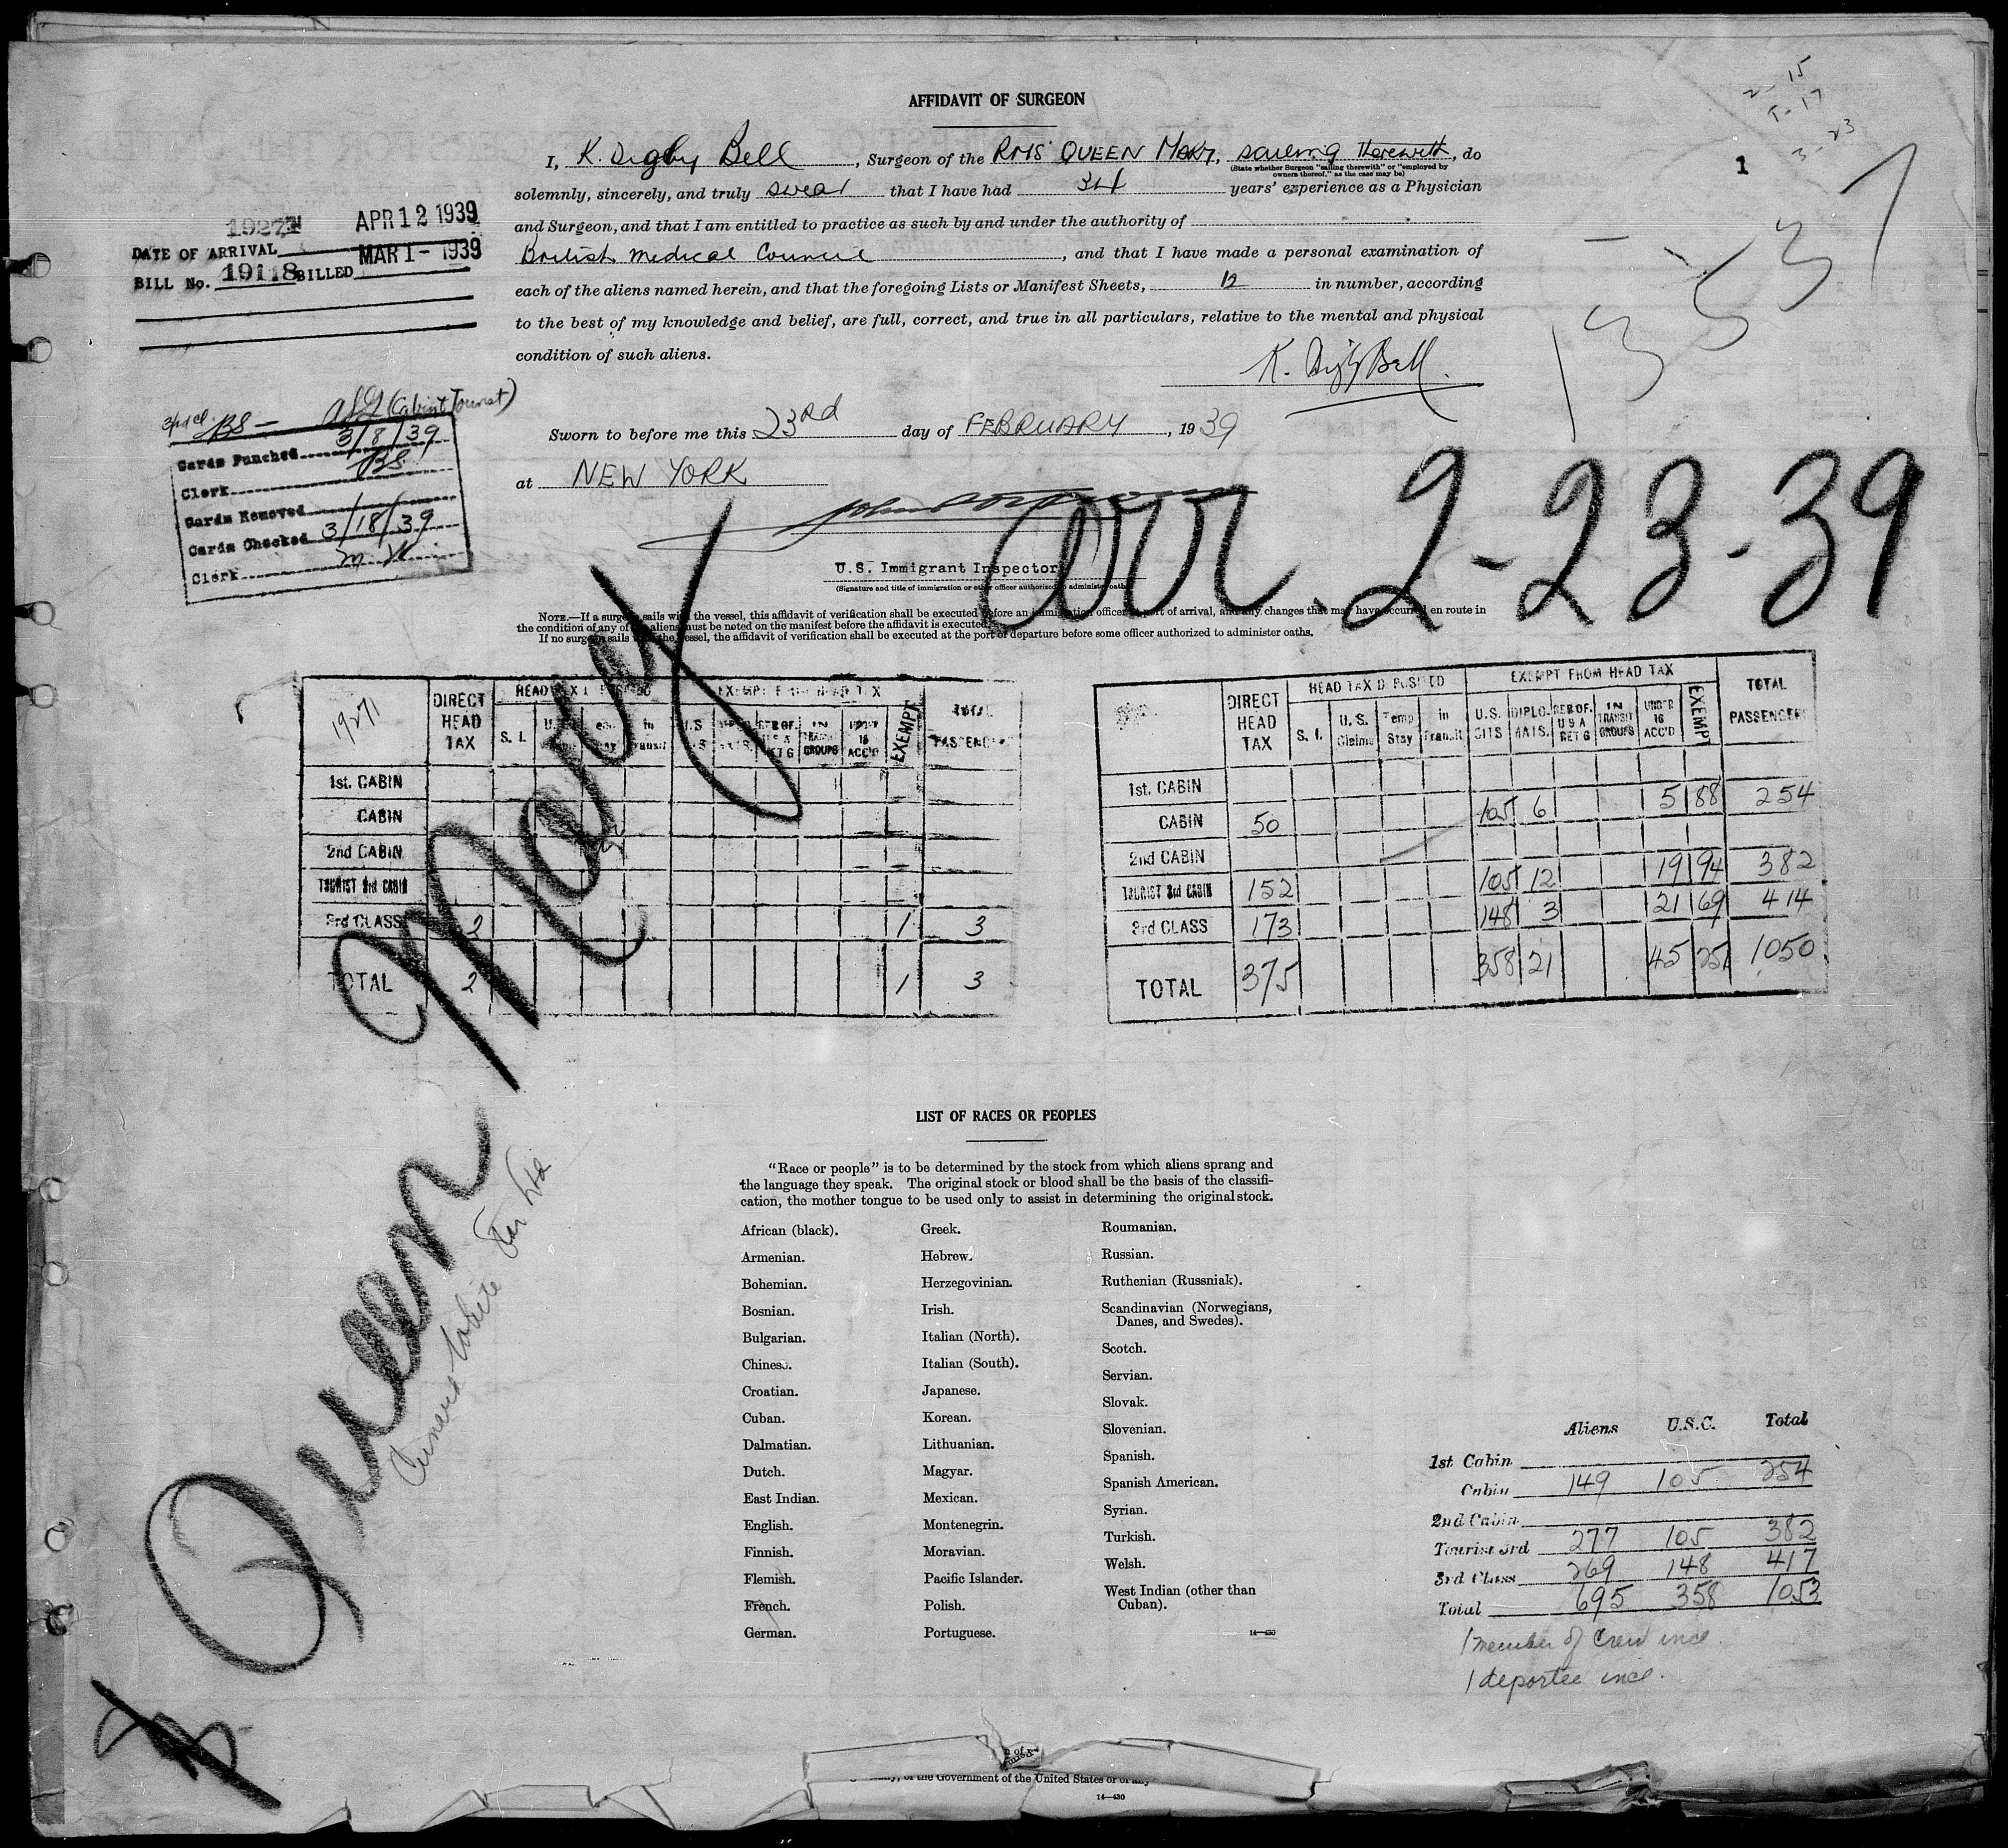 AFFIDAVIT OF SURGEON
I, K. Digby Bell, Surgeon of the RMS QUEEN MARY, sailing therewith, do
(State whether Surgeon "sailing therewith" or "employed by
owners thereof," as the case may be)
solemnly, sincerely, and truly swear that I have had 34 years' experience as a Physician
and Surgeon, and that I am entitled to practice as such by and under the authority of
British Medical Council, and that I have made a personal examination of
each of the aliens named herein, and that the foregoing Lists or Manifest Sheets, 12 in number, according
to the best of my knowledge and belief, are full, correct, and true in all particulars, relative to the mental and physical
condition of such aliens.
K. Digby Bell.
Sworn to before me this 23rd day of FEBRUARY, 1939
at NEW YORK
U.S. Immigrant Inspector
(Signature and title of immigration or other officer authorized to administer oaths)
NOTE.—If a surgeon sails with the vessel, this affidavit of verification shall be executed before an immigration officer at port of arrival, and any changes that may have occurred en route in
the condition of any of the aliens must be noted on the manifest before the affidavit is executed.
If no surgeon sails with the vessel, the affidavit of verification shall be executed at the port of departure before some officer authorized to administer oaths.
1
2-15
5-17
3-23
APR 12 1939
DATE OF ARRIVAL MAR 1- 1939
BILL No. 19118 BILLED
3rd cl. BS - (Cabin + Tourist)
Cards Punched 3/8/39
Clerk BS.
Cards Removed
Cards Checked 3/18/39
Clerk
arr. 2-23-39
Queen Mary
Cunard White Star Ltd
19271
DIRECT HEAD TAX
HEAD TAX DEPOSITED
EXEMPT FROM HEAD TAX
TOTAL PASSENGERS
1st. CABIN
CABIN
2nd CABIN
TOURIST 3rd CABIN
3rd CLASS 2 1 3
TOTAL 2 1 3
DIRECT HEAD TAX
HEAD TAX DEPOSITED
S. I.
U.S. Claims
Temp Stay
in Transit
EXEMPT FROM HEAD TAX
U.S. CITS
DIPLOMATS.
RES OF. U S A RET G
IN TRANSIT GROUPS
UNDER 16 ACC'D
EXEMPT
TOTAL PASSENGERS
1st. CABIN
CABIN 50 105 6 5 88 254
2nd CABIN
TOURIST 3rd CABIN 152 105 12 19 94 382
3rd CLASS 173 148 3 21 69 414
TOTAL 375 358 21 45 251 1050
LIST OF RACES OR PEOPLES
"Race or people" is to be determined by the stock from which aliens sprang and
the language they speak. The original stock or blood shall be the basis of the classifi-
cation, the mother tongue to be used only to assist in determining the original stock.
African (black).
Armenian.
Bohemian.
Bosnian.
Bulgarian.
Chinese.
Croatian.
Cuban.
Dalmatian.
Dutch.
East Indian.
English.
Finnish.
Flemish.
French.
German.
Greek.
Hebrew.
Herzegovinian.
Irish.
Italian (North).
Italian (South).
Japanese.
Korean.
Lithuanian.
Magyar.
Mexican.
Montenegrin.
Moravian.
Pacific Islander.
Polish.
Portuguese.
Roumanian.
Russian.
Ruthenian (Russniak).
Scandinavian (Norwegians,
Danes, and Swedes).
Scotch.
Servian.
Slovak.
Slovenian.
Spanish.
Spanish American.
Syrian.
Turkish.
Welsh.
West Indian (other than
Cuban).
14—430
Aliens U.S.C. Total
1st Cabin
Cabin 149 105 254
2nd Cabin
Tourist 3rd 277 105 382
3rd Class 269 148 417
Total 695 358 1053
1 member of Crew incl.
1 deportee incl.
of the Government of the United States or of any
14—430